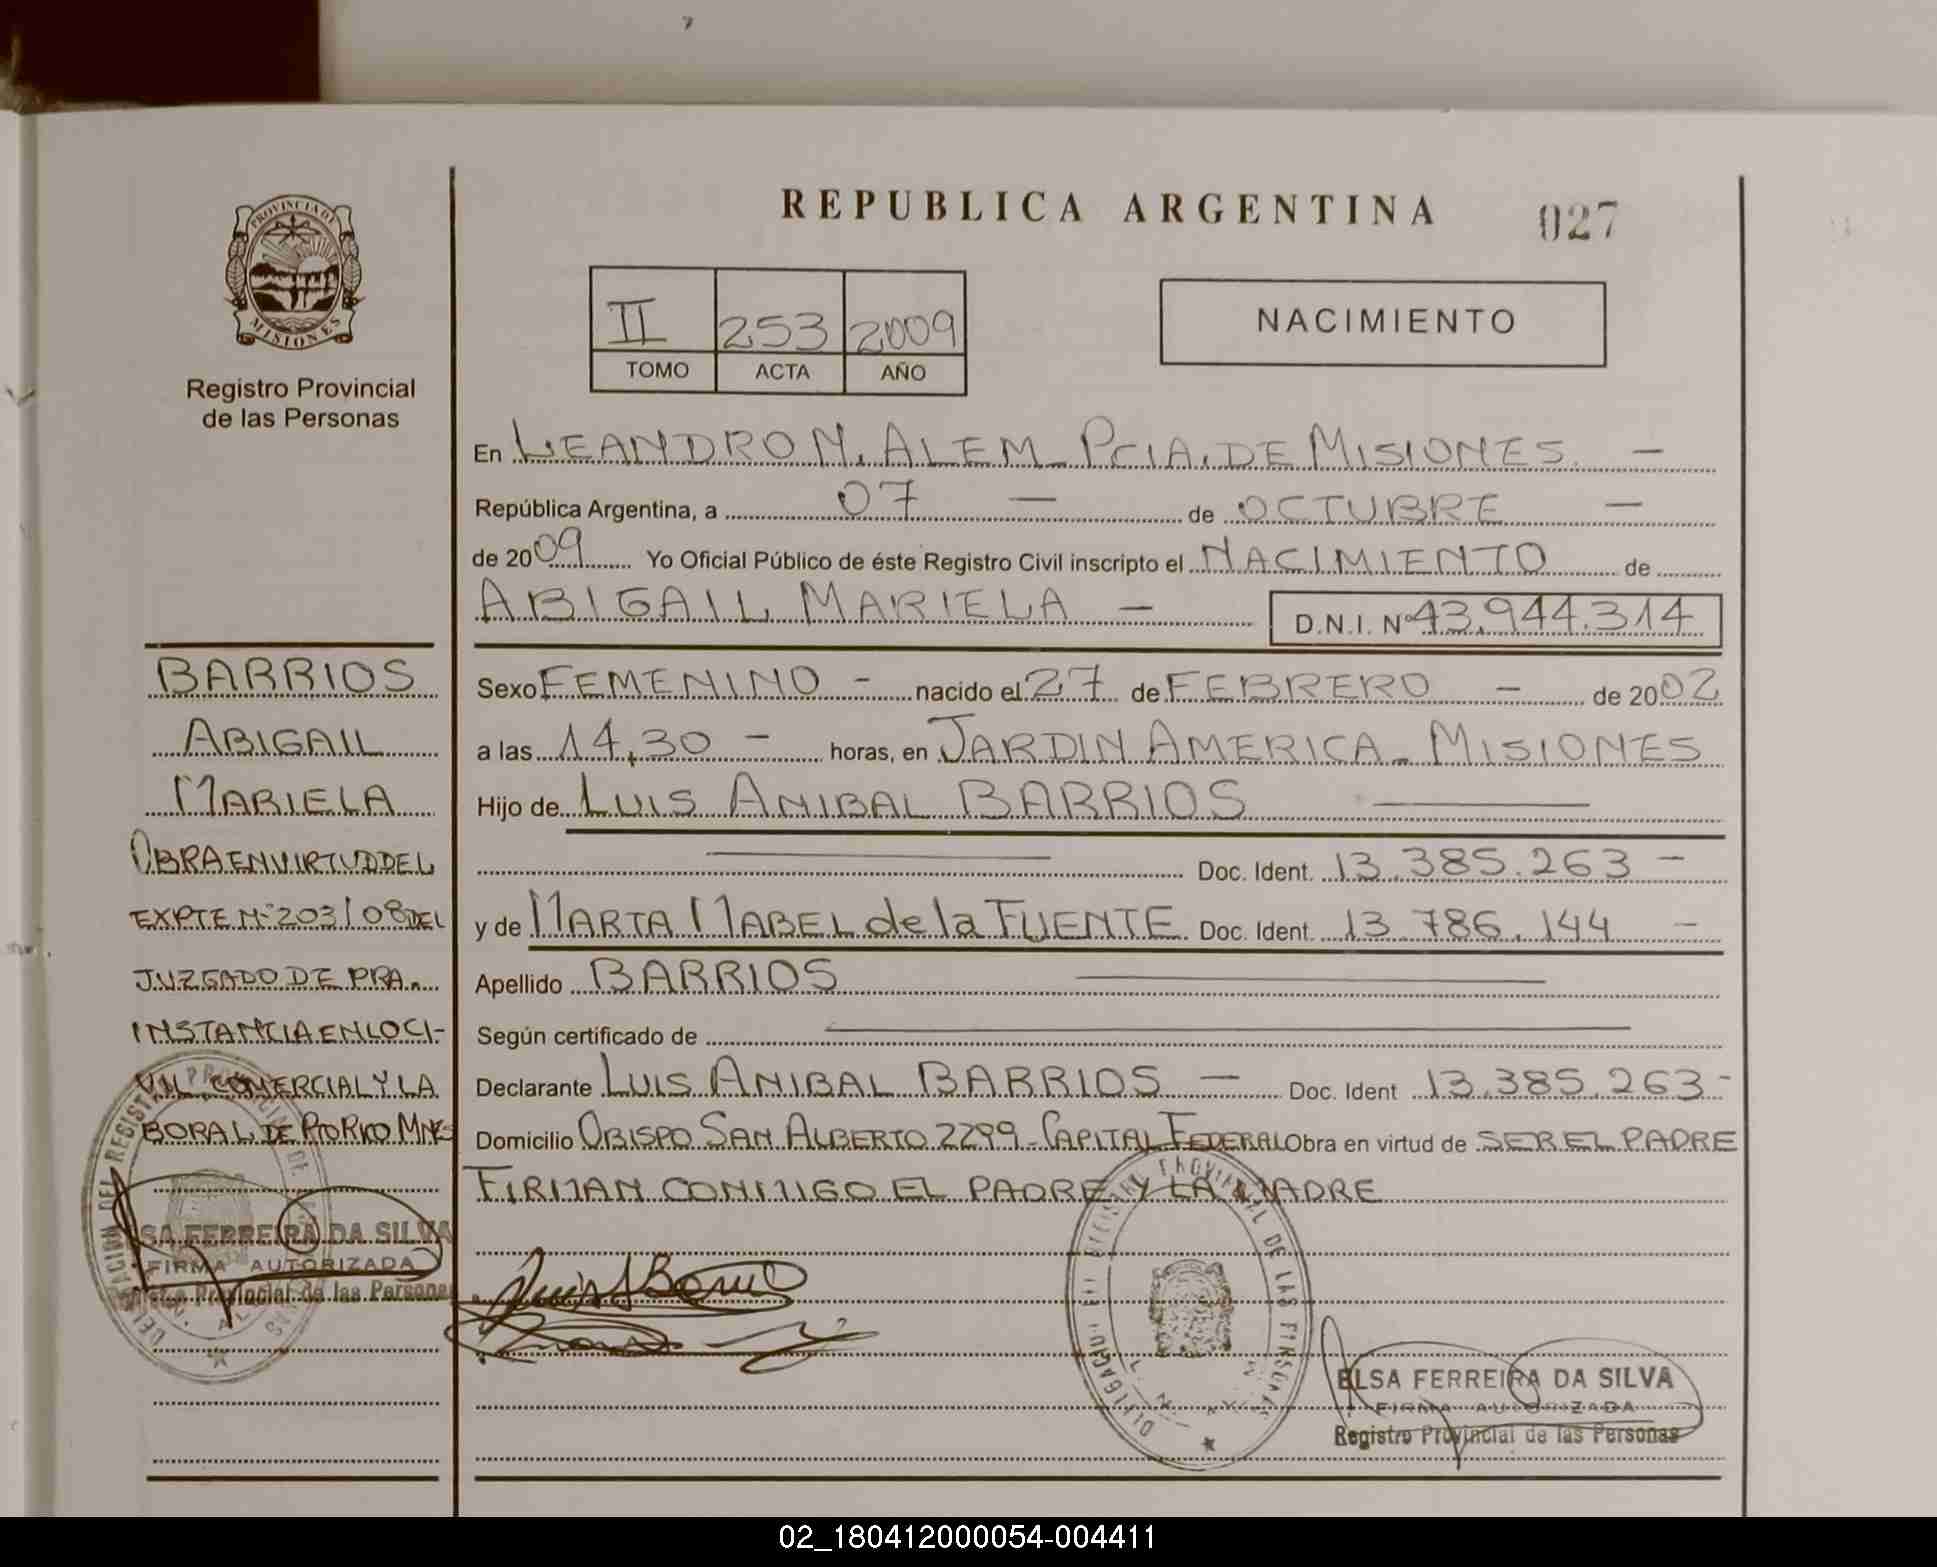 PROVINCIA DE
MISIONES
Registro Provincial
de las Personas
BARRIOS
ABIGAIL
MARIELA
OBRA EN VIRTUD DEL
EXPTE Nº 203/08 DEL
JUZGADO DE PRA.
INSTANCIA EN LO CI-
VIL COMERCIAL Y LA
BORAL DE PTO RICO MNES
ELSA FERREIRA DA SILVA
FIRMA AUTORIZADA
Registro Provincial de las Personas
REPUBLICA ARGENTINA
027
II 253 2009
TOMO ACTA AÑO
NACIMIENTO
En LEANDRO N. ALEM - PCIA. DE MISIONES. —
República Argentina, a 07 — de OCTUBRE —
de 2009 Yo Oficial Público de éste Registro Civil inscripto el NACIMIENTO de
ABIGAIL MARIELA — D.N.I. Nº 43.944.314
Sexo FEMENINO - nacido el 27 de FEBRERO — de 2002
a las 14,30 - horas, en JARDIN AMERICA - MISIONES
Hijo de LUIS ANIBAL BARRIOS —
— Doc. Ident. 13.385.263 -
y de MARTA MABEL de la FUENTE Doc. Ident. 13.786.144 -
Apellido BARRIOS —
Según certificado de —
Declarante LUIS ANIBAL BARRIOS — Doc. Ident 13.385.263 -
Domicilio OBISPO SAN ALBERTO 2299 - CAPITAL FEDERAL Obra en virtud de SER EL PADRE
FIRMAN CONMIGO EL PADRE Y LA MADRE
DELEGACION DEL REGISTRO PROVINCIAL DE LAS PERSONAS
ELSA FERREIRA DA SILVA
FIRMA AUTORIZADA
Registro Provincial de las Personas
02_180412000054-004411